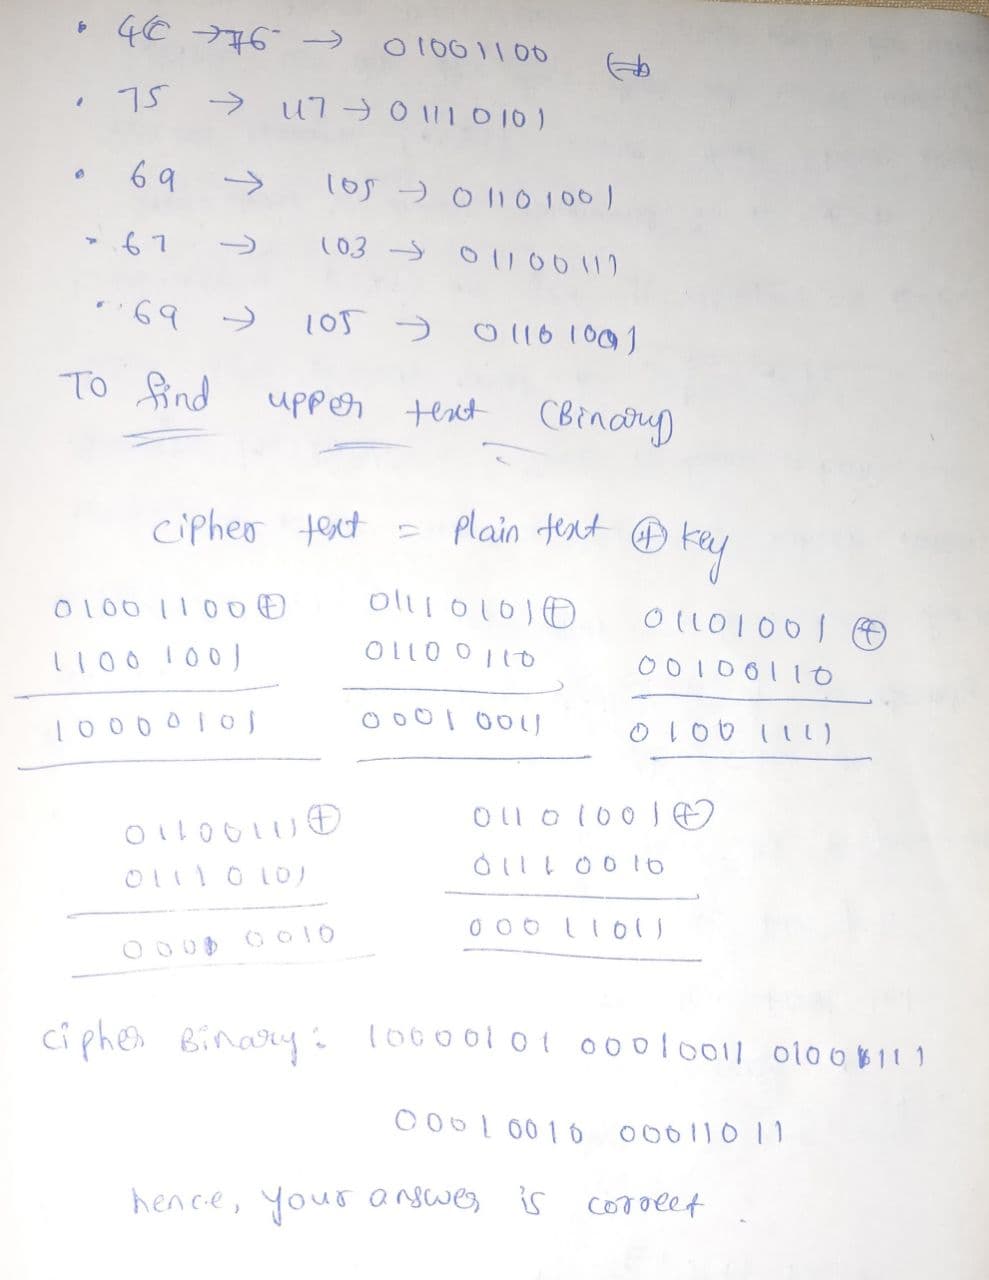 • 4C → 76 → 01001100
• 75 → 117 → 01110101
• 69 → 105 → 01101001
• 67 → 103 → 01100111
• 69 → 105 → 01101001
To find upper text (Binary)
cipher text = plain text ⊕ key
01001100 ⊕ 01110101 ⊕ 01101001 ⊕
11001001 01100110 00100110
10000101 00010011 01001111
01100111 ⊕ 01101001 ⊕
01110101 01110010
00010010 00011011
cipher Binary: 10000101 00010011 01001111
00010010 00011011
hence, your answer is correct.